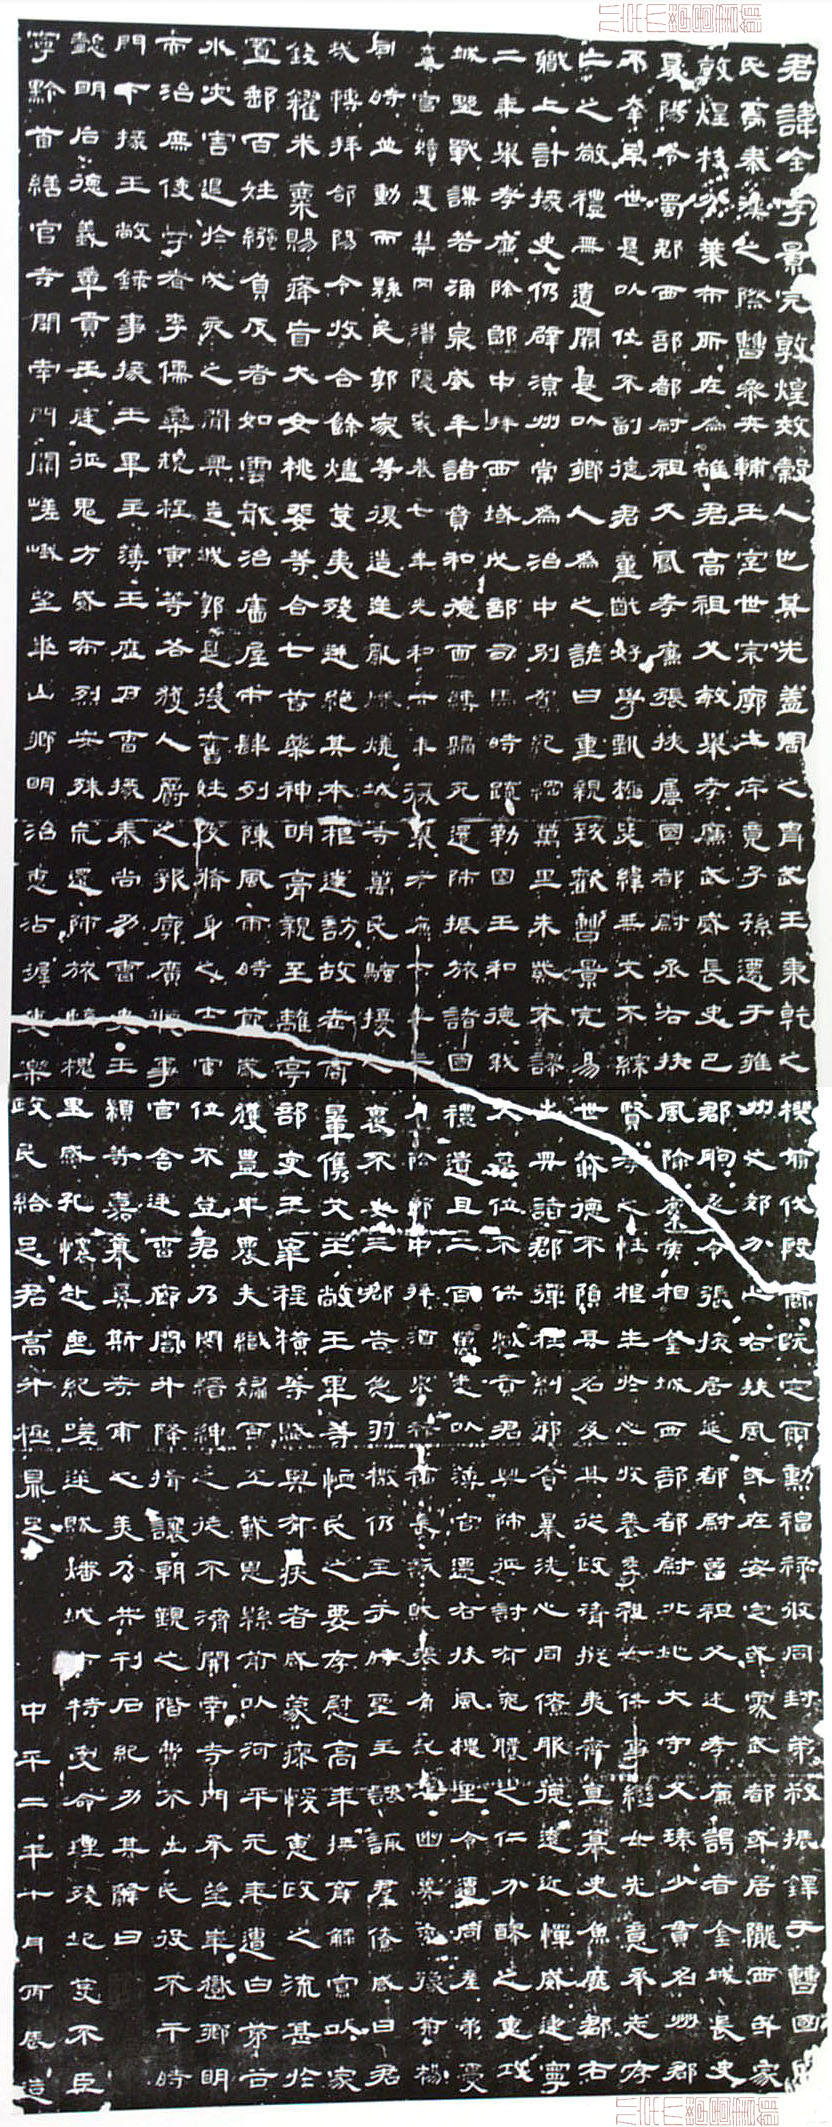 君諱全字景完敦煌效穀人也其先蓋周之胄武王秉乾之機翦伐殷商既定爾勳福祿攸同封弟叔振鐸于曹國因
氏焉秦漢之際曹參夾輔王室世宗廓土斥竟子孫遷于雍州之郊分止右扶風或在安定或處武都或居隴西或家
敦煌枝分葉布所在為雄君高祖父敏舉孝廉武威長史巴郡朐忍令張掖居延都尉曾祖父述孝廉謁者金城長史
夏陽令蜀郡西部都尉祖父鳳孝廉張掖屬國都尉丞右扶風隃麋侯相金城西部都尉北地大守父琫少貫名州郡
不幸早世是以位不副德君童齔好學甄極毖緯無文不綜賢孝之性根生於心收養季祖母供事繼母先意承志存
亡之敬禮無遺闕是以鄉人為之諺曰重親致歡曹景完易世載德不隕其名及其從政清擬夷齊直慕史魚歷郡右
職上計掾史仍辟涼州常為治中別駕紀綱萬里朱紫不謬出典諸郡彈枉糾邪貪暴洗心同僚服德遠近憚威建寧
二年舉孝廉除郎中拜西域戊部司馬時疏勒國王和德弒父篡位不供職貢君興師征討有兗膿之仁分醪之惠攻
城野戰謀若涌泉威牟諸賁和德面縛歸死還師振旅諸國禮遺且二百萬悉以薄官遷右扶風槐里令遭同產弟憂
棄官續遇禁冈潛隱家巷七年光和六年復舉孝廉七年三月除郎中拜酒泉祿福長訞賊張角起兵幽冀兗豫荊楊
同時並動而縣民郭家等復造逆亂燔燒城寺萬民騷擾人褱不安三郡告急羽檄仍至于時聖主諮諏群僚咸曰君
哉轉拜郃陽令收合餘燼芟夷殘迸絕其本根遂訪故老商量儁艾王敞王畢等恤民之要存慰高年撫育鰥寡以家
錢糴米粟賜癃盲大女桃婓等合七首藥神明膏親至離亭部吏王宰程橫等賦與有疾者咸蒙瘳悛惠政之流甚於
置郵百姓繈負反者如雲戢治廧屋市肆列陳風雨時節歲獲豐年農夫織婦百工戴恩縣前以河平元年遭白茅谷
水灾害退於戌亥之間興造城郭是後舊姓及脩身之士官位不登君乃閔縉紳之徒不濟開南寺門承望華嶽鄉明
而治庶使學者李儒欒規程寅等各獲人爵之報廓廣聽事官舍廷曹廊閤升降揖讓朝覲之階費不出民役不干時
門下掾王敞錄事掾王畢主薄王歷戶曹掾秦尚功曹史王顓等嘉慕奚斯考甫之美乃共刊石紀功其辭曰
懿明后德義章貢王庭征鬼方威布烈安殊巟還師旅臨槐里感孔懷赴喪紀嗟逆賊燔城市特受命理殘圮芟不臣
寧黔首繕官寺開南門闕嵯峨望華山鄉明治惠沾渥吏樂政民給足君高升極鼎足 中平二年十月丙辰造